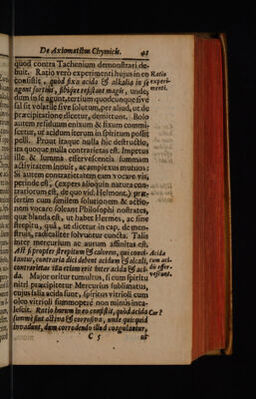 De Axiomatibus Chymicis. 41
quod contra Tachenium demonstrari de-
buit. Ratio verò experimenti hujus in eo Ratio
consistit, quod fixa acida & alkalia in se experi-
agant fortius, sibique resistant magis, unde, menti.
dum in se agunt, tertium quodcunque sive
sal sit volatile sive solutum, per aliud, ut de
præcipitatione dicetur, demittunt. Bolo
autem residuum enixum & fixum commi-
scetur, ut acidum iterum in spiritum possit
pelli. Prout itaque nulla hîc destructio,
ita quoque nulla contrarietas est. Impetus
ille & summa effervescentia summam
activitatem innuit, ac amplexus mutuos:
Si autem contrarietatem eam vocare vis,
perinde est, (expers alioquin natura con-
trarietatum est, de quo vid. Helmont.) præ-
sertim cum similem solutionem & actio-
nem vocare soleant Philosophi nostrates,
quæ blanda est, ut habet Hermes, ac sine
strepitu, quâ, ut dicetur in cap. de mon-
struis, radicaliter solvuntur cuncta. Talis
inter mercurium ac aurum affinitas est.
Ast si propter strepitum & calorem, qui conci-
tantur, contraria dici debent acidum & alcali, Acida
contrarietas ita etiam erit inter acida & aci- cum aci-
da. Major oritur tumultus, si cum spiritu dis effer-
nitri præcipitetur Mercurius sublimatus, vescunt.
cujus salia acida sunt, spiritus vitrioli cum
oleo vitrioli summoptè non minùs inca-
lescit. Ratio horum in eo consistit, quòd acida Cur?
summè sint activa & corrosiva, unde quicquid
invadunt, dum corrodendo illud coagulantur,
C 5